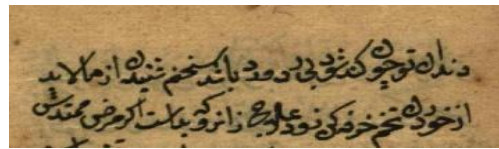 دندان تو چون کند شود بی در و درد باید سخنم شنیدن از ما لابد
از خوردن تخم خرفه کن زود علاج زانرو که بغایت اکر مرض ممتد شد